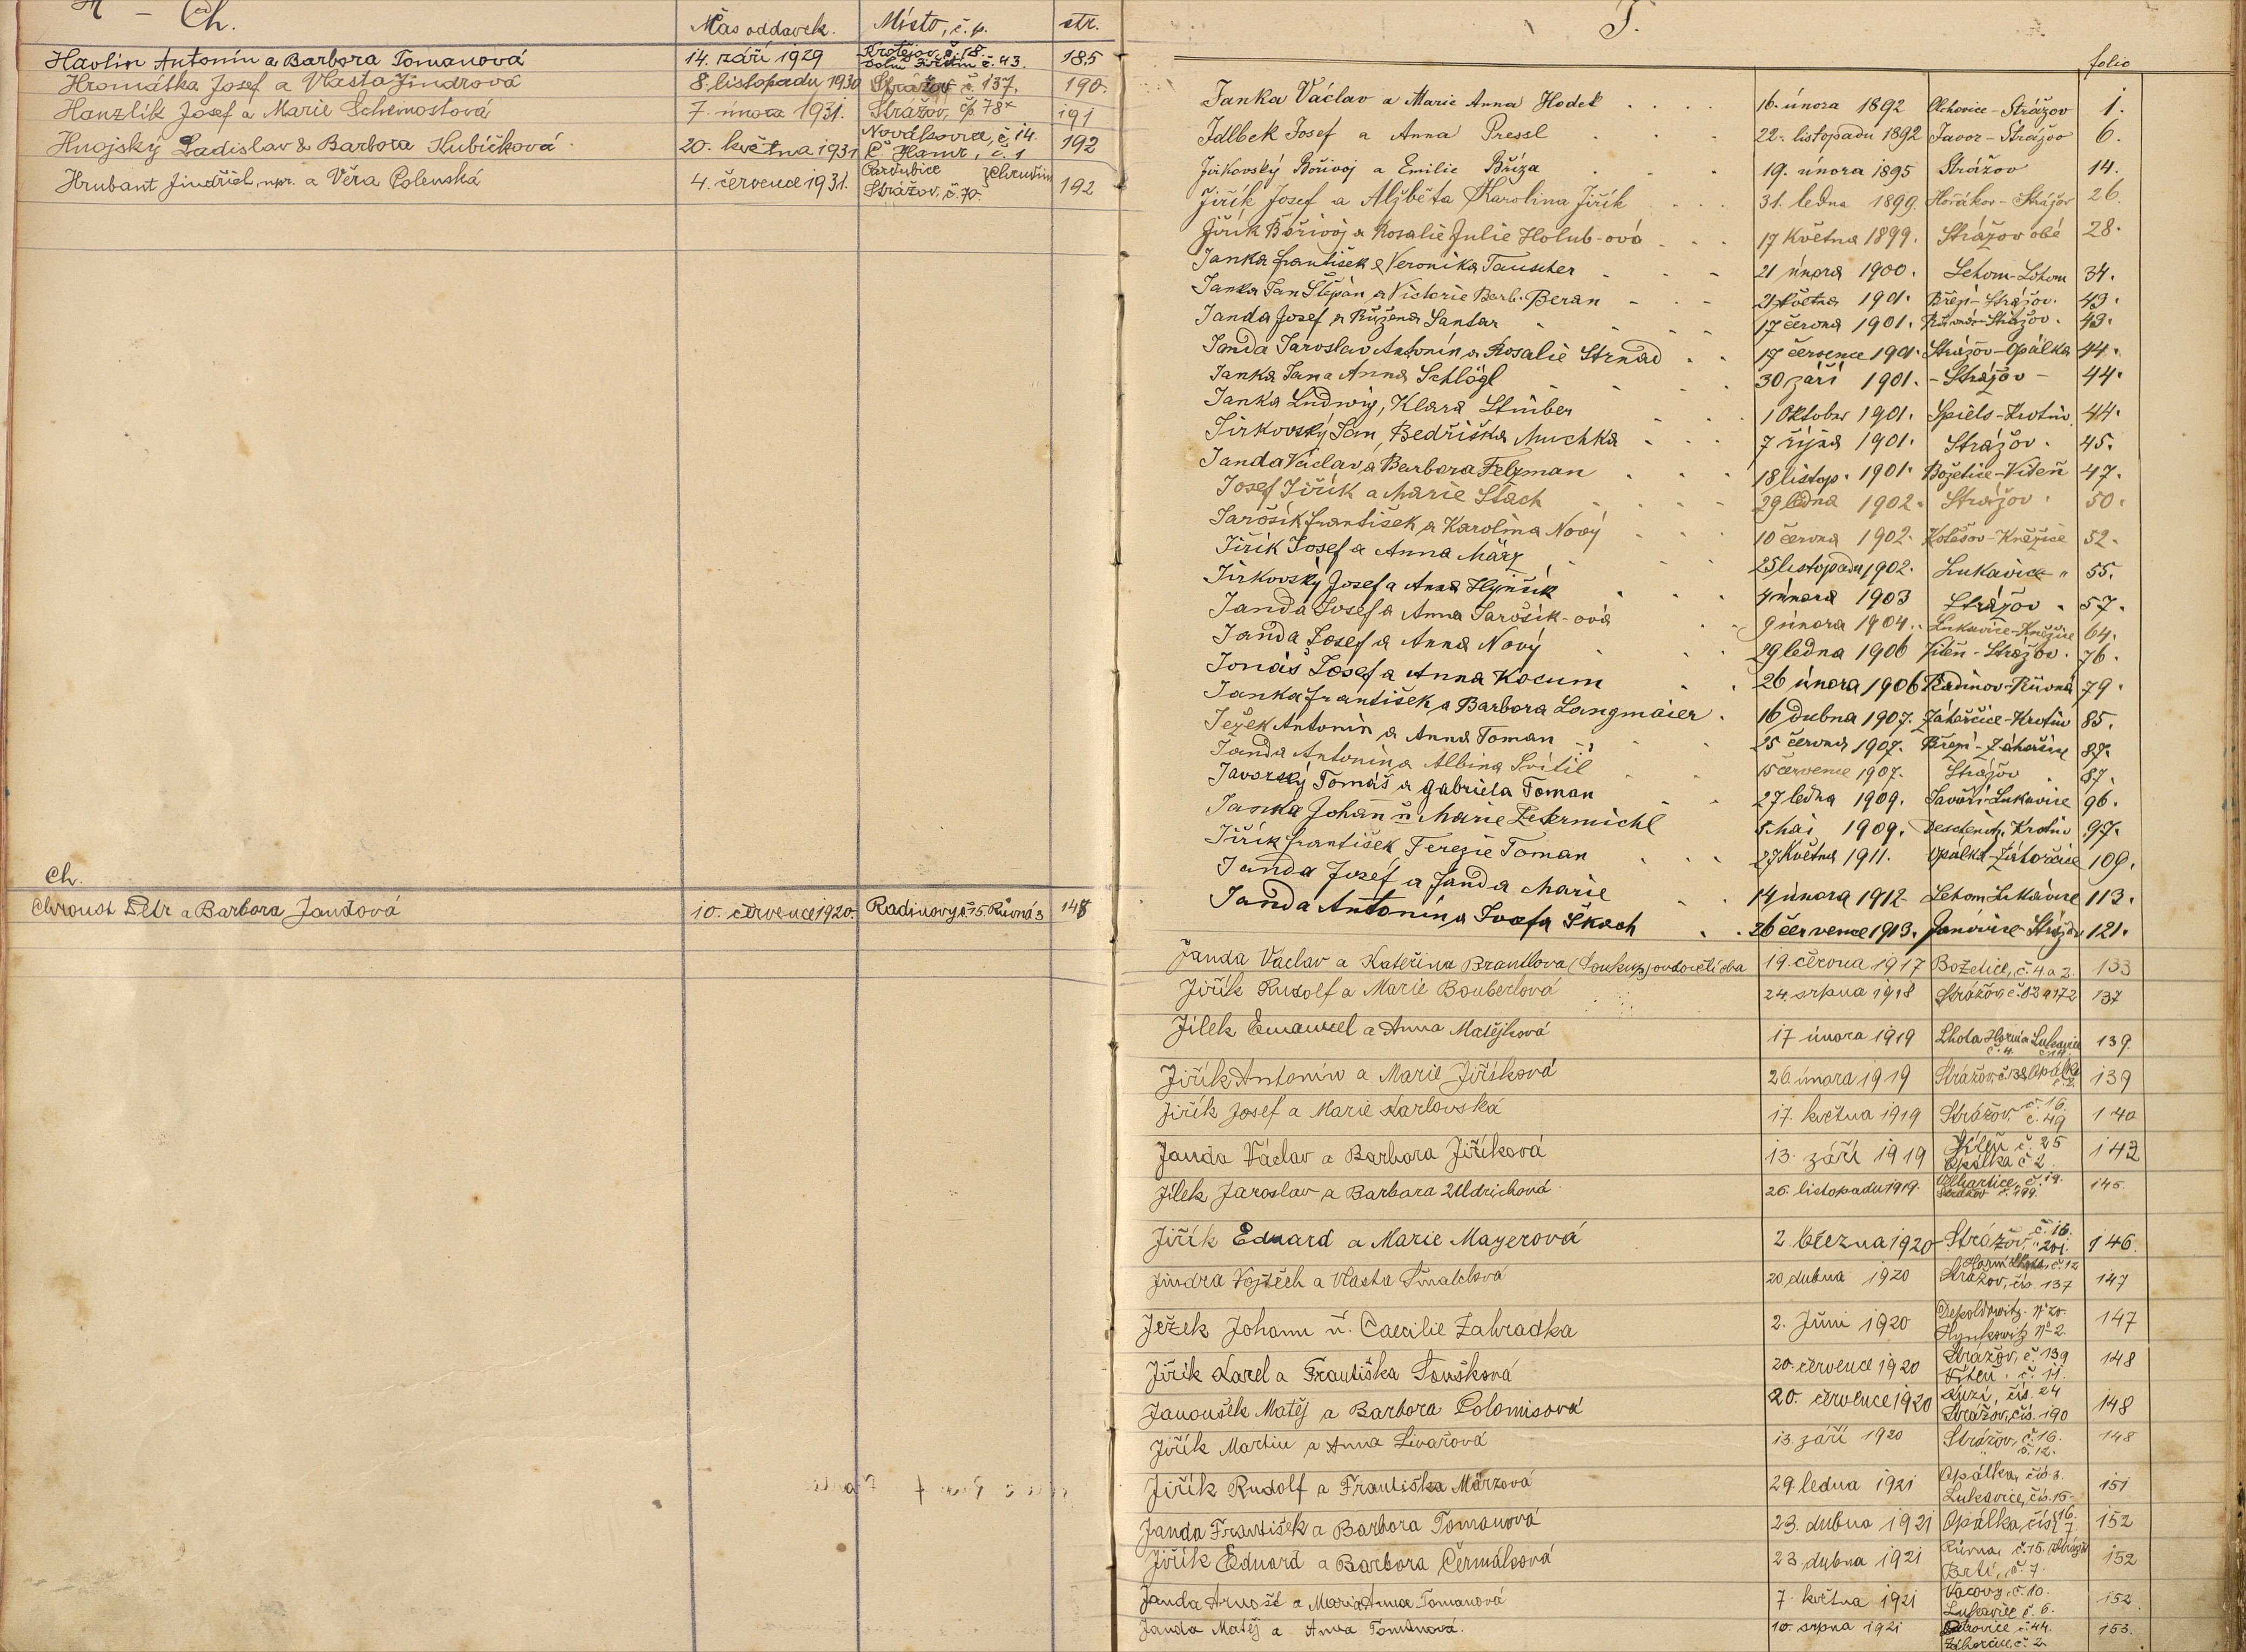 H – Ch. Čas oddavek. Místo, č. p. str.
Havlin Antonín a Barbora Tomanová 14. září 1929 Krotějov, č. 18. č. 43. 185
Hromátka Josef a Vlasta Jindrová 8. listopadu 1930 Strážov č. 137. 190.
Hanzlík Josef a Marie 7. února 1931. Strážov, čp. 78 191
Hnojský Ladislav & Barbora Kubíčková 20. května 1931 Novákovice, č. 14. Č. Hamr, č. 1 192
Hrubant Jindřich, npr. a Věra Polenská 4. července 1931. Pardubice Strážov, č. 70. 192
Ch.
Chroust Petr a Barbora Jandová 10. července 1920. Radinovy č. 15. Růvná 3 148
J.
folio
Janka Václav a Marie Anna Hodek . . . . 16. února 1892 Olchovice – Strážov 1.
Josef a Anna Pressl . . . 22. listopadu 1892 Javor – Strážov 6.
Jirkovský Bořivoj a Emilie Bříza . . . 19. února 1895 Strážov 14.
Jiřík Josef a Alžběta Karolina Jiřík . . . 31. ledna 1899. Horákov – Strážov 26.
Jiřík Bořivoj a Rosalie Julie Holub-ová . . . 17 Května 1899. Strážov obé 28.
Janka František & Veronika Tauscher . . 21 února 1900. Lehom – Lehom 34.
Janka Jan Štěpán a Victorie Barb. Beran - - 21 května 1901. Břeží – Strážov. 43.
Janda Josef a Růžena Santar . . . . 17 června 1901. Strážov. 43.
Janda Jaroslav Antonín a Rosalie Strnad . . 17 července 1901. Strážov – Opálka 44.
Janka Jan a Anna Schlögl . . . 30 září 1901. – Strážov – 44.
Janka Ludwig, Klara Stuiber . . . 1 Oktober 1901. 44.
Jirkovský Jan, Bedřiška Muchka . . . 7 října 1901. Strážov. 45.
Janda Václav a Barbora Felzman . . . 18 listop. 1901. Božetice – Viteň 47.
Josef Jiřík a Marie Stach . . . 29 ledna 1902. Strážov. 50.
Jarošík František a Karolina Nový . . . 10 června 1902. Kněžice 52.
Jiřík Josef a Anna März . . . 25 listopadu 1902. Lukavice " 55.
Jirkovský Josef a Anna . . . 4 února 1903 Strážov . 57.
Janda Josef a Anna Jarošík-ová . . 9 února 1904. Lukavice – Kněžice 64.
Janda Josef a Anna Nový . . . 29 ledna 1906 Viteň – Strážov. 76.
Jonáš Josef a Anna Kocum . . 26 února 1906 Radinov – Růvná 79.
Janka František a Barbora Langmaier . 16 dubna 1907. Zahorčice – Krotiv 85.
Ježek Antonín a Anna Toman . . . 25 června 1907. Břeží – Zahorčice 87.
Janda Antonín a Albina Svitil . . 15 července 1907. Strážov . 87.
Javorský Tomáš a Gabriela Toman . . 27 ledna 1909. Lukavice 96.
Janka Johann u Marie Zetermichl 5 Mai 1909. Deschenitz, Krotiv 97.
Jiřík František Terezie Toman . . . 27 Května 1911. Opálka – Zahorčice 109.
Janda Josef a Janda Marie . . 14 února 1912 Lehom Lukavice 113.
Janda Antonín a Josefa Škach . . 26 července 1913. Janovice – Strážov 121.
Janda Václav a Kateřina Brantlova (Soukup) ovdovělí oba 19. června 1917 Božetice, č. 4 a 2. 133
Jiřík Rudolf a Marie Bouberlová 24. srpna 1918 Strážov, č. 83 a 172 137
Jílek Emanuel a Anna Matějková 17 února 1919 Lhota Horní č. 4. Lukavice č. 14. 139.
Jiřík Antonín a Marie Jiříková 26. února 1919 Strážov, č. 138, Opálka č. 2. 139
Jiřík Josef a Marie Karlovská 17. května 1919 Strážov, č. 16. č. 49 140
Janda Václav a Barbora Jiříková 13. září 1919 Viteň č. 25 Opálka č. 2 142
Jílek Jaroslav a Barbara Uldrichová 26. listopadu 1919. Velhartice, č. 19. Strážov č. 199. 145.
Jiřík Eduard a Marie Mayerová 2. března 1920 Strážov, č. 16. " 201. 146.
Jindra Vojtěch a Vlasta Šmalclová 20. dubna 1920 Horní Lhota, č. 12 Strážov, čís. 137 147
Ježek Johann u. Caecilie Zahradka 2. Juni 1920 Depoldowitz. No 20. Hynkowitz No 2. 147
Jiřík Karel a Františka Toušková 20. července 1920 Strážov, č. 139 Viteň . č. 11. 148
Janoušek Matěj a Barbora Polomisová 20. července 1920 čís. 24 Strážov, čís. 190 148
Jiřík Martin a Anna Sivařová 13. září 1920 Strážov, č. 16. č. 12. 148
Jiřík Rudolf a Františka Märzová 29. ledna 1921 Opálka, čís. 3. Lukavice, čís. 15. 151
Janda František a Barbora Tomanová 23. dubna 1921 Opálka, čís. 16. 7. 152
Jiřík Eduard a Barbora Čermáková 23. dubna 1921 Růvna, č. 15. Brtí, č. 7. 152
Janda Arnošt a Maria Anna Tomanová 7. května 1921 Vacovy, č. 10. Lukavice č. 6. 152
Janda Matěj a Anna Tomanová. 10. srpna 1921 č. 44. Zahorčice, č. 2. 153.